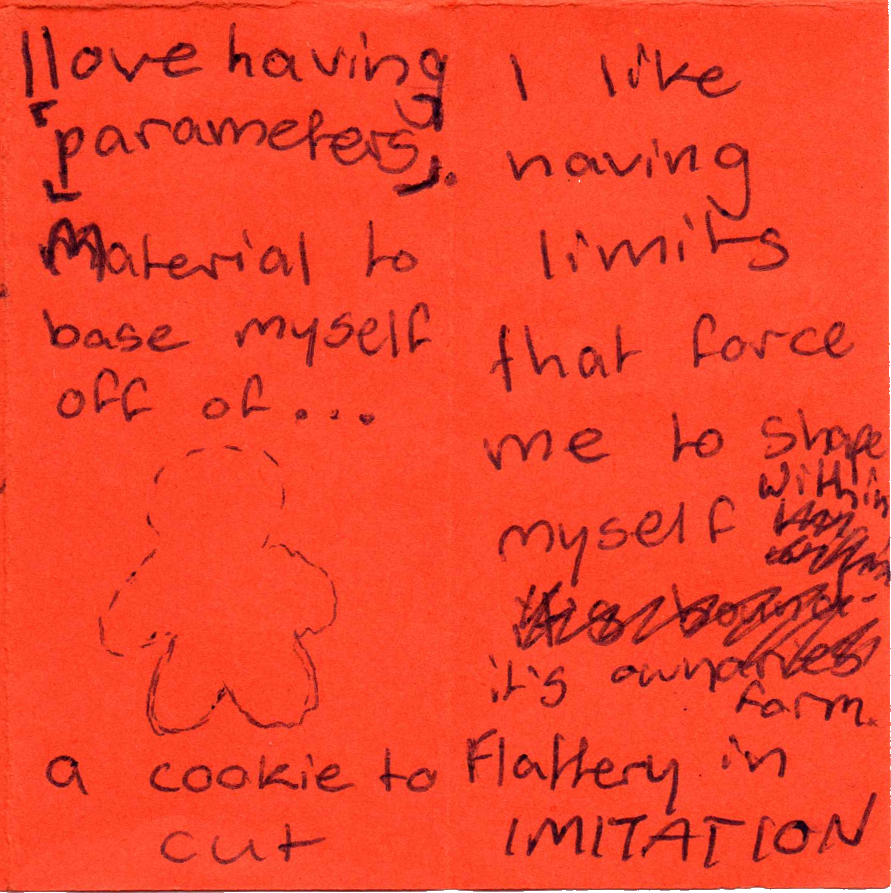 I love having
[parameters].
Material to
base myself
off of...
a cookie to
cut
I like
having
limits
that force
me to shape
myself within
it's own
form.
Flattery in
IMITATION